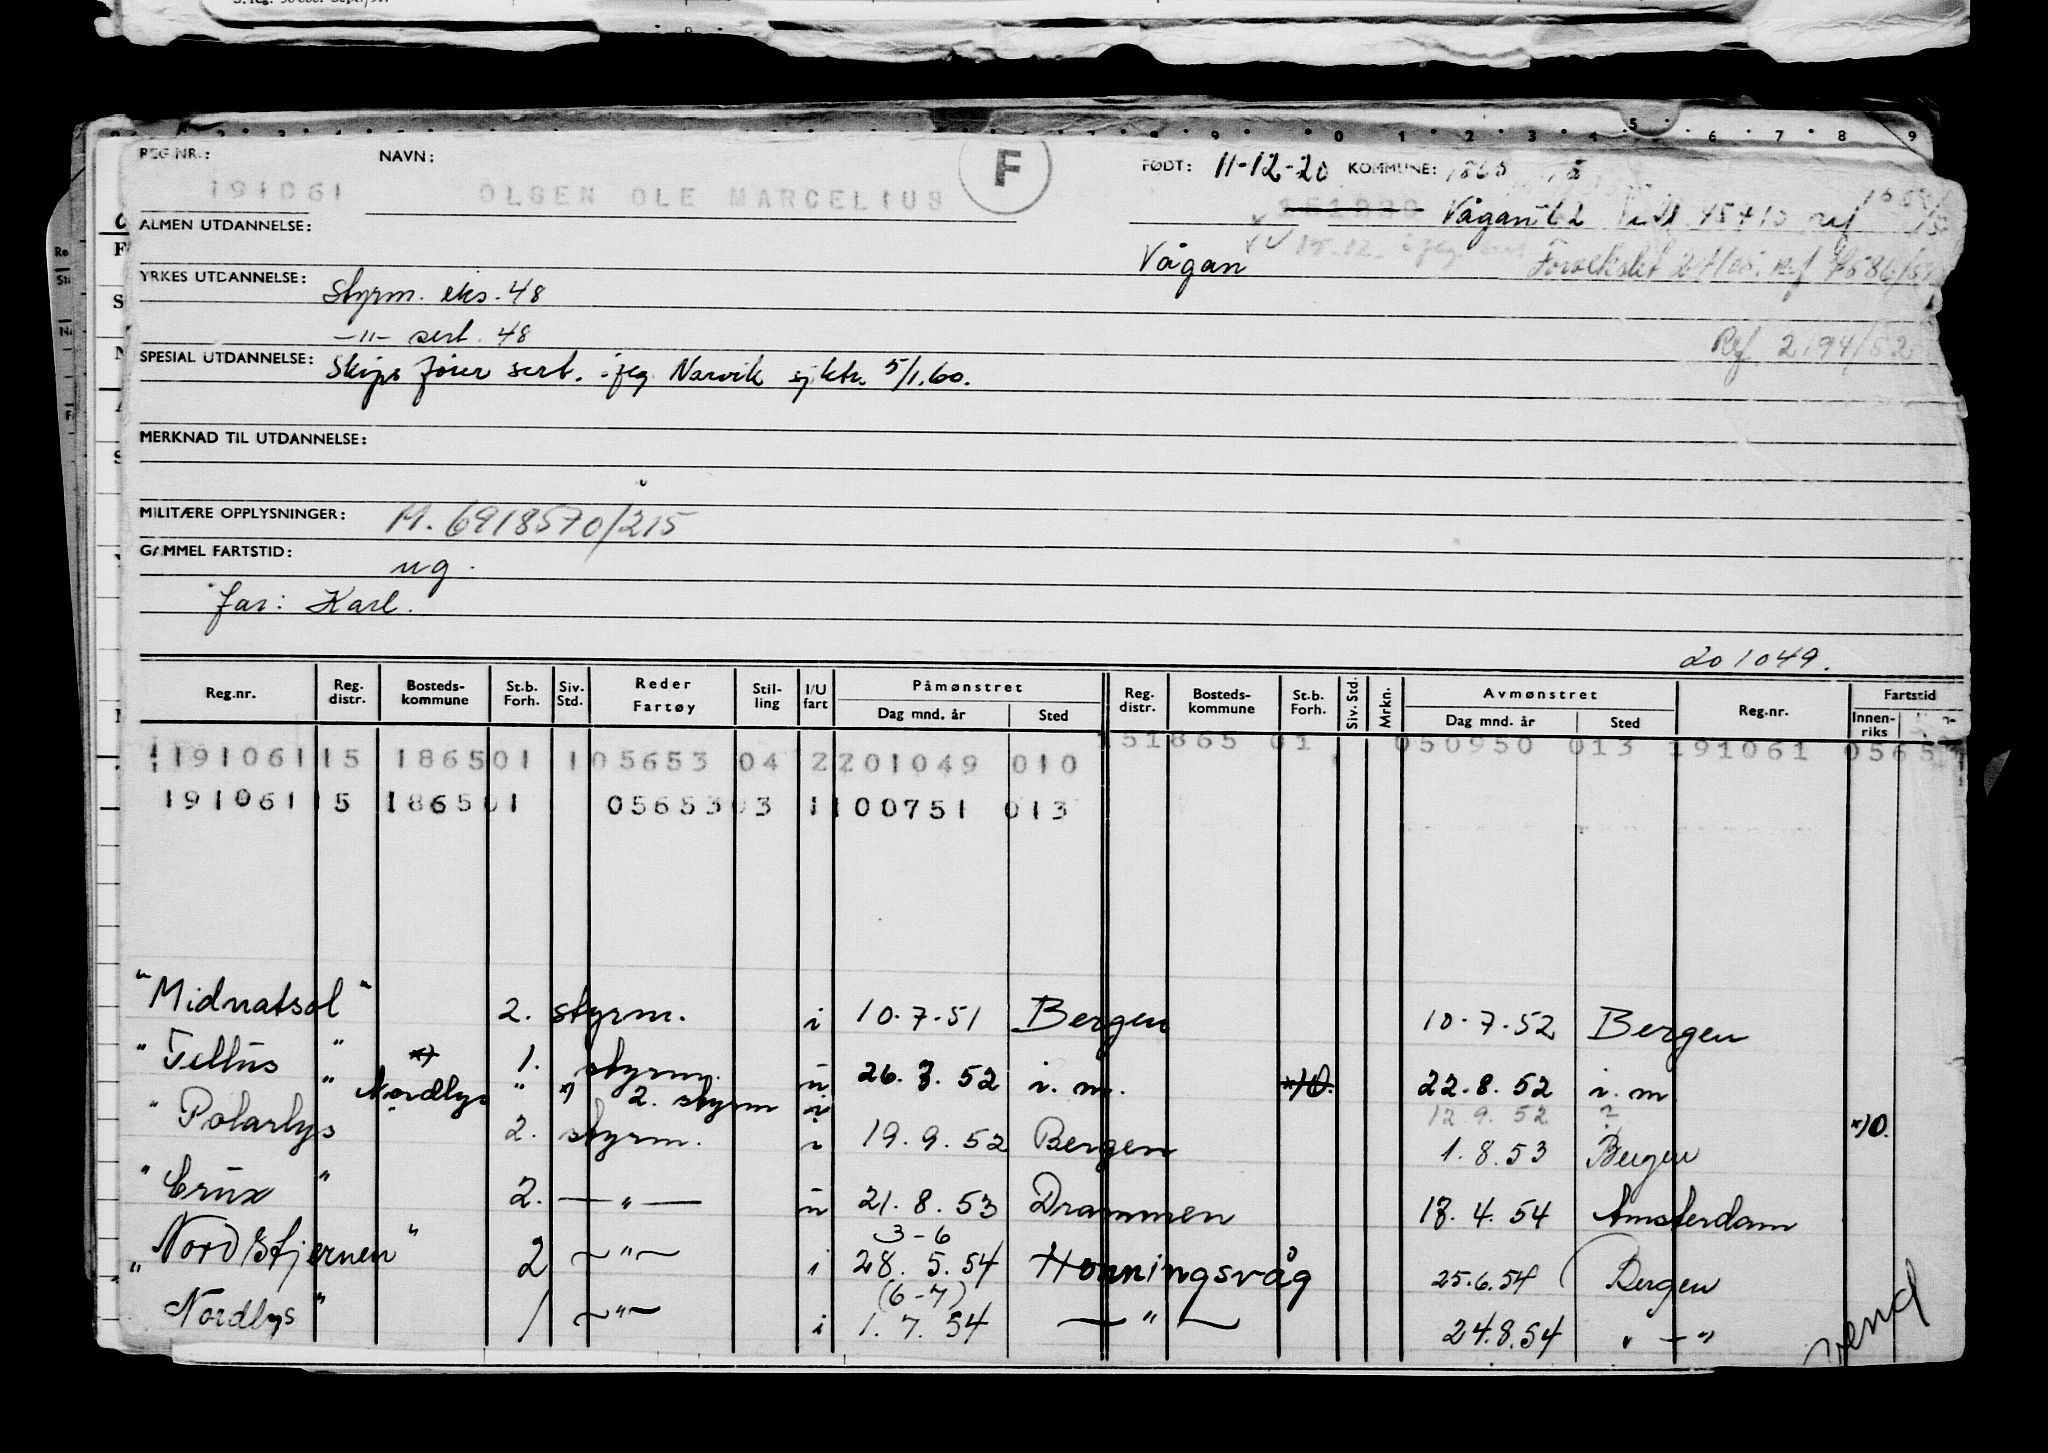 REG NR.: NAVN: F FØDT: 11-12-20 KOMMUNE: 1865
191061 OLSEN OLE MARCELIUS
Vågan
ALMEN UTDANNELSE:
Vågan
YRKES UTDANNELSE: Styrm. eks. 48
-"- sert. 48
Ref. 2194/52
SPESIAL UTDANNELSE: Skips fører sert. i flg. Narvik sj.ktr. 5/1.60.
MERKNAD TIL UTDANNELSE:
MILITÆRE OPPLYSNINGER: M. 6918570/215
GAMMEL FARTSTID: ug.
far: Karl.
201049.
Reg.nr. Reg. distr. Bosteds- kommune St.b. Forh. Siv. Std. Reder Fartøy Stil- ling I/U fart Påmønstret Reg. distr. Bosteds- kommune St.b. Forh. Siv. Std. Mrkn. Avmønstret Reg.nr. Fartstid
Dag mnd. år Sted Dag mnd. år Sted Innen- riks
191061 15 1865 01 1 05653 04 2 201049 010 151865 01 050950 013 191061 0565
191061 15 1865 01 05653 03 1 100751 013
"Midnatsol" 2. styrm. i 10.7.51 Bergen 10.7.52 Bergen
"Tellus" 1. styrm. u 26.7.52 i.m. 22.8.52 i.m.
Nordlys " 2. styrm i 12.9.52 ?
"Polarlys" 2. styrm. i 19.9.52 Bergen 1.8.53 Bergen
"Crux" 2. -"- u 21.8.53 Drammen 18.4.54 Amsterdam
3-6
"Nordstjernen" 2 -"- i 28.5.54 Honningsvåg 25.6.54 Bergen
(6-7)
"Nordlys" 1 -"- i 1.7.54 -"- 24.8.54 -"-
vend